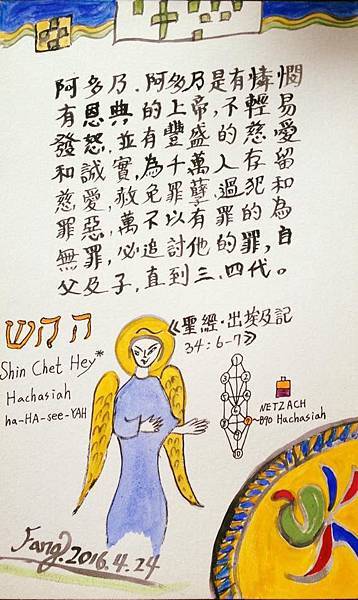 阿多乃.阿多乃是有憐憫
有恩典的上帝,不輕易
發怒,並有豐盛的慈愛
和誠實,為千萬人存留
慈愛,赦免罪孽.過犯和
罪惡,萬不以有罪的為
無罪,必追討他的罪,自
父及子,直到三.四代。
《聖經:出埃及記
34:6-7》
Shin Chet Hey*
Hachasiah
ha-HA-see-YAH
NETZACH
Hachasiah
Fang. 2016.4.24